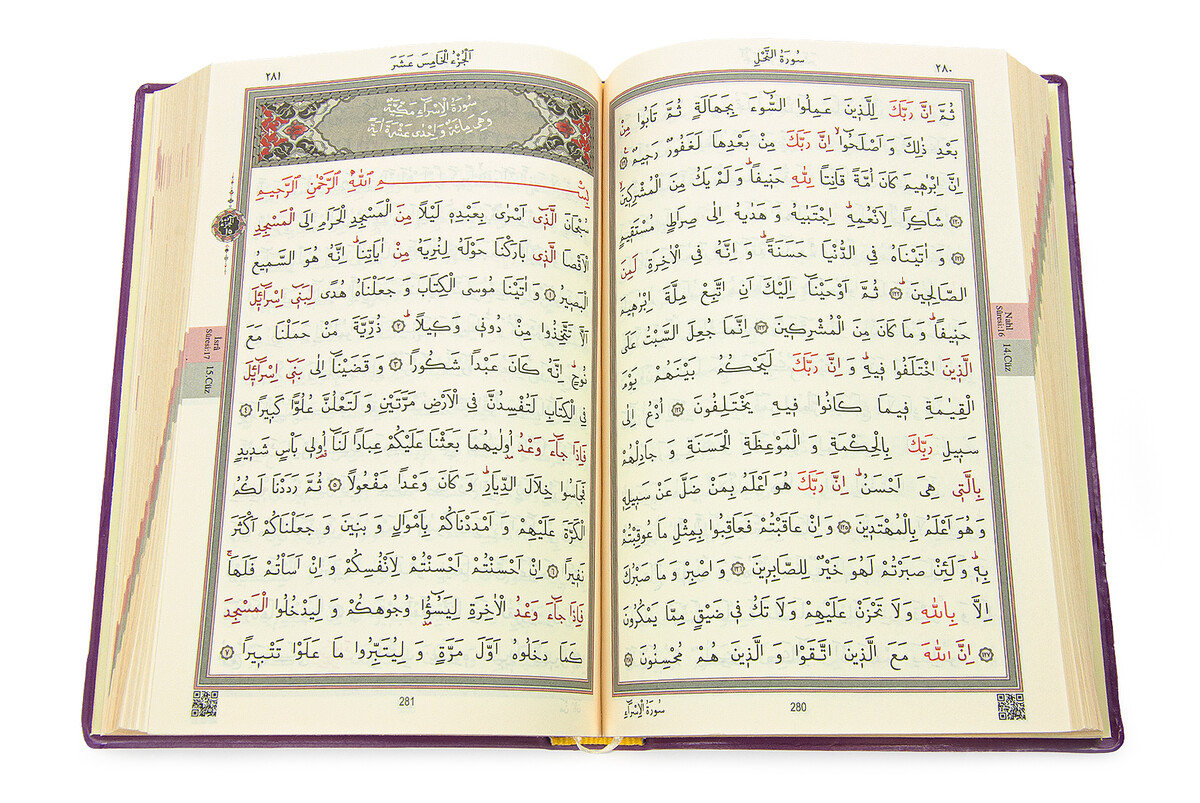 ٢٨٠
سُورَةُ النَّحْلِ
ثُمَّ اِنَّ رَبَّكَ لِلَّذٖينَ عَمِلُوا السُّٓوءَ بِجَهَالَةٍ ثُمَّ تَابُوا مِنْ
بَعْدِ ذٰلِكَ وَ اَصْلَحُٓوا اِنَّ رَبَّكَ مِنْ بَعْدِهَا لَغَفُورٌ رَحٖيمٌ ﴿١١٩﴾
اِنَّ اِبْرٰهٖيمَ كَانَ اُمَّةً قَانِتًا لِلّٰهِ حَنٖيفًاؕ وَ لَمْ يَكُ مِنَ الْمُشْرِكٖينَۙ
﴿١٢٠﴾ شَاكِرًا لِاَنْعُمِهٖؕ اِجْتَبٰيهُ وَ هَدٰيهُ اِلٰى صِرَاطٍ مُسْتَقٖيمٍ
﴿١٢١﴾ وَ اٰتَيْنَاهُ فِي الدُّنْيَا حَسَنَةًؕ وَ اِنَّهُ فِي الْاٰخِرَةِ لَمِنَ
الصَّالِحٖينَؕ ﴿١٢٢﴾ ثُمَّ اَوْحَيْنَٓا اِلَيْكَ اَنِ اتَّبِعْ مِلَّةَ اِبْرٰهٖيمَ
حَنٖيفًاؕ وَ مَا كَانَ مِنَ الْمُشْرِكٖينَ ﴿١٢٣﴾ اِنَّمَا جُعِلَ السَّبْتُ عَلَى
الَّذٖينَ اخْتَلَفُوا فٖيهِؕ وَ اِنَّ رَبَّكَ لَيَحْكُمُ بَيْنَهُمْ يَوْمَ
الْقِيٰمَةِ فٖيمَا كَانُوا فٖيهِ يَخْتَلِفُونَ ﴿١٢٤﴾ اُدْعُ اِلٰى
سَبٖيلِ رَبِّكَ بِالْحِكْمَةِ وَ الْمَوْعِظَةِ الْحَسَنَةِ وَ جَادِلْهُمْ
بِالَّتٖي هِيَ اَحْسَنُؕ اِنَّ رَبَّكَ هُوَ اَعْلَمُ بِمَنْ ضَلَّ عَنْ سَبٖيلِهٖ
وَ هُوَ اَعْلَمُ بِالْمُهْتَدٖينَ ﴿١٢٥﴾ وَ اِنْ عَاقَبْتُمْ فَعَاقِبُوا بِمِثْلِ مَا عُوقِبْتُمْ
بِهٖؕ وَ لَئِنْ صَبَرْتُمْ لَهُوَ خَيْرٌ لِلصَّابِرٖينَ ﴿١٢٦﴾ وَ اصْبِرْ وَ مَا صَبْرُكَ
اِلَّا بِاللّٰهِ وَ لَا تَحْزَنْ عَلَيْهِمْ وَ لَا تَكُ فٖي ضَيْقٍ مِمَّا يَمْكُرُونَ
﴿١٢٧﴾ اِنَّ اللّٰهَ مَعَ الَّذٖينَ اتَّقَوْا وَ الَّذٖينَ هُمْ مُحْسِنُونَ ﴿١٢٨﴾
280
سُورَةُ الْاِسْرَٓاءِ
Nahl
Sûresi:16
14.Cüz
اَلْجُزْءُ الْخَامِسَ عَشَرَ
٢٨١
سُورَةُ الْاِسْرَٓاءِ مَكِّيَّةٌ
وَ هِيَ مِائَةٌ وَ اِحْدٰى عَشْرَةَ اٰيَةً
بِسْمِ اللّٰهِ الرَّحْمٰنِ الرَّحٖيمِ
سُبْحَانَ الَّذٖٓي اَسْرٰى بِعَبْدِهٖ لَيْلًا مِنَ الْمَسْجِدِ الْحَرَامِ اِلَى الْمَسْجِدِ
الْاَقْصَا الَّذٖي بَارَكْنَا حَوْلَهُ لِنُرِيَهُ مِنْ اٰيَاتِنَاؕ اِنَّهُ هُوَ السَّمٖيعُ
الْبَصٖيرُ ﴿١﴾ وَ اٰتَيْنَا مُوسَى الْكِتَابَ وَ جَعَلْنَاهُ هُدًى لِبَنٖٓي اِسْرَٓائٖلَ
اَلَّا تَتَّخِذُوا مِنْ دُونٖي وَكٖيلًاؕ ﴿٢﴾ ذُرِّيَّةَ مَنْ حَمَلْنَا مَعَ
نُوحٍؕ اِنَّهُ كَانَ عَبْدًا شَكُورًا ﴿٣﴾ وَ قَضَيْنَٓا اِلٰى بَنٖٓي اِسْرَٓائٖلَ
فِي الْكِتَابِ لَتُفْسِدُنَّ فِي الْاَرْضِ مَرَّتَيْنِ وَ لَتَعْلُنَّ عُلُوًّا كَبٖيرًا ﴿٤﴾
فَاِذَا جَٓاءَ وَعْدُ اُو۫لٰيهُمَا بَعَثْنَا عَلَيْكُمْ عِبَادًا لَنَٓا اُو۬لٖي بَأْسٍ شَدٖيدٍ
فَجَاسُوا خِلَالَ الدِّيَارِؕ وَ كَانَ وَعْدًا مَفْعُولًا ﴿٥﴾ ثُمَّ رَدَدْنَا لَكُمُ
الْكَرَّةَ عَلَيْهِمْ وَ اَمْدَدْنَاكُمْ بِاَمْوَالٍ وَ بَنٖينَ وَ جَعَلْنَاكُمْ اَكْثَرَ
نَفٖيرًا ﴿٦﴾ اِنْ اَحْسَنْتُمْ اَحْسَنْتُمْ لِاَنْفُسِكُمْ وَ اِنْ اَسَأْتُمْ فَلَهَاؕ
فَاِذَا جَٓاءَ وَعْدُ الْاٰخِرَةِ لِيَسُٓؤُ۫ا وُجُوهَكُمْ وَ لِيَدْخُلُوا الْمَسْجِدَ
كَمَا دَخَلُوهُ اَوَّلَ مَرَّةٍ وَ لِيُتَبِّرُوا مَا عَلَوْا تَتْبٖيرًا ﴿٧﴾
281
İsrâ
Sûresi:17
15.Cüz